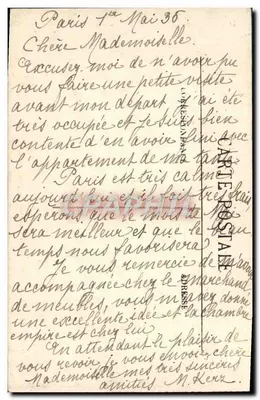 Paris 1er Mai 36.
Chère Mademoiselle.
Excusez moi de n'avoir pu
vous faire une petite visite
avant mon départ j'ai été
très occupée et je suis bien
contente d'en avoir fini avec
l'appartement de ma
Paris est très calme
aujourd'hui et il fait très frais
espérons que le mois de
sera meilleur et que le beau
temps nous favorisera
Je vous remercie de m'avoir
accompagnée chez le marchand
de meubles, vous m'avez donné
une excellente idée et la chambre
empire est chez lui
En attendant le plaisir de
vous revoir je vous envoie, chère
Mademoiselle mes très sincères
amitiés M. Kerz.
CARTE POSTALE
CORRESPONDANCE
ADRESSE